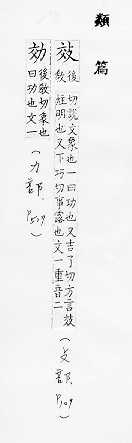 類篇
效 後敎切說文象也一曰功也又吉了切方言效
烓明也又下巧切事露也文一重音二
(攴部, P.109)
効 後敎切象也一
曰功也文一
(力部, P.509)